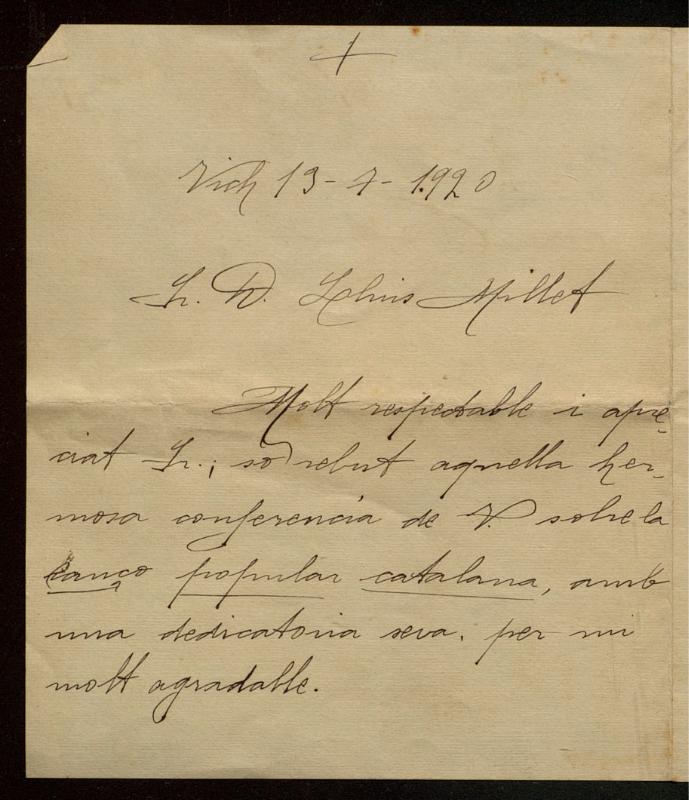 Vich 13-7-1.920
Sr. D. Lluis Millet
Molt respectable i apre-
ciat Sr.; so rebut aquella her-
mosa conferencia de V. sobre la
canço popular catalana, amb
una dedicatoria seva, per mi
molt agradable.